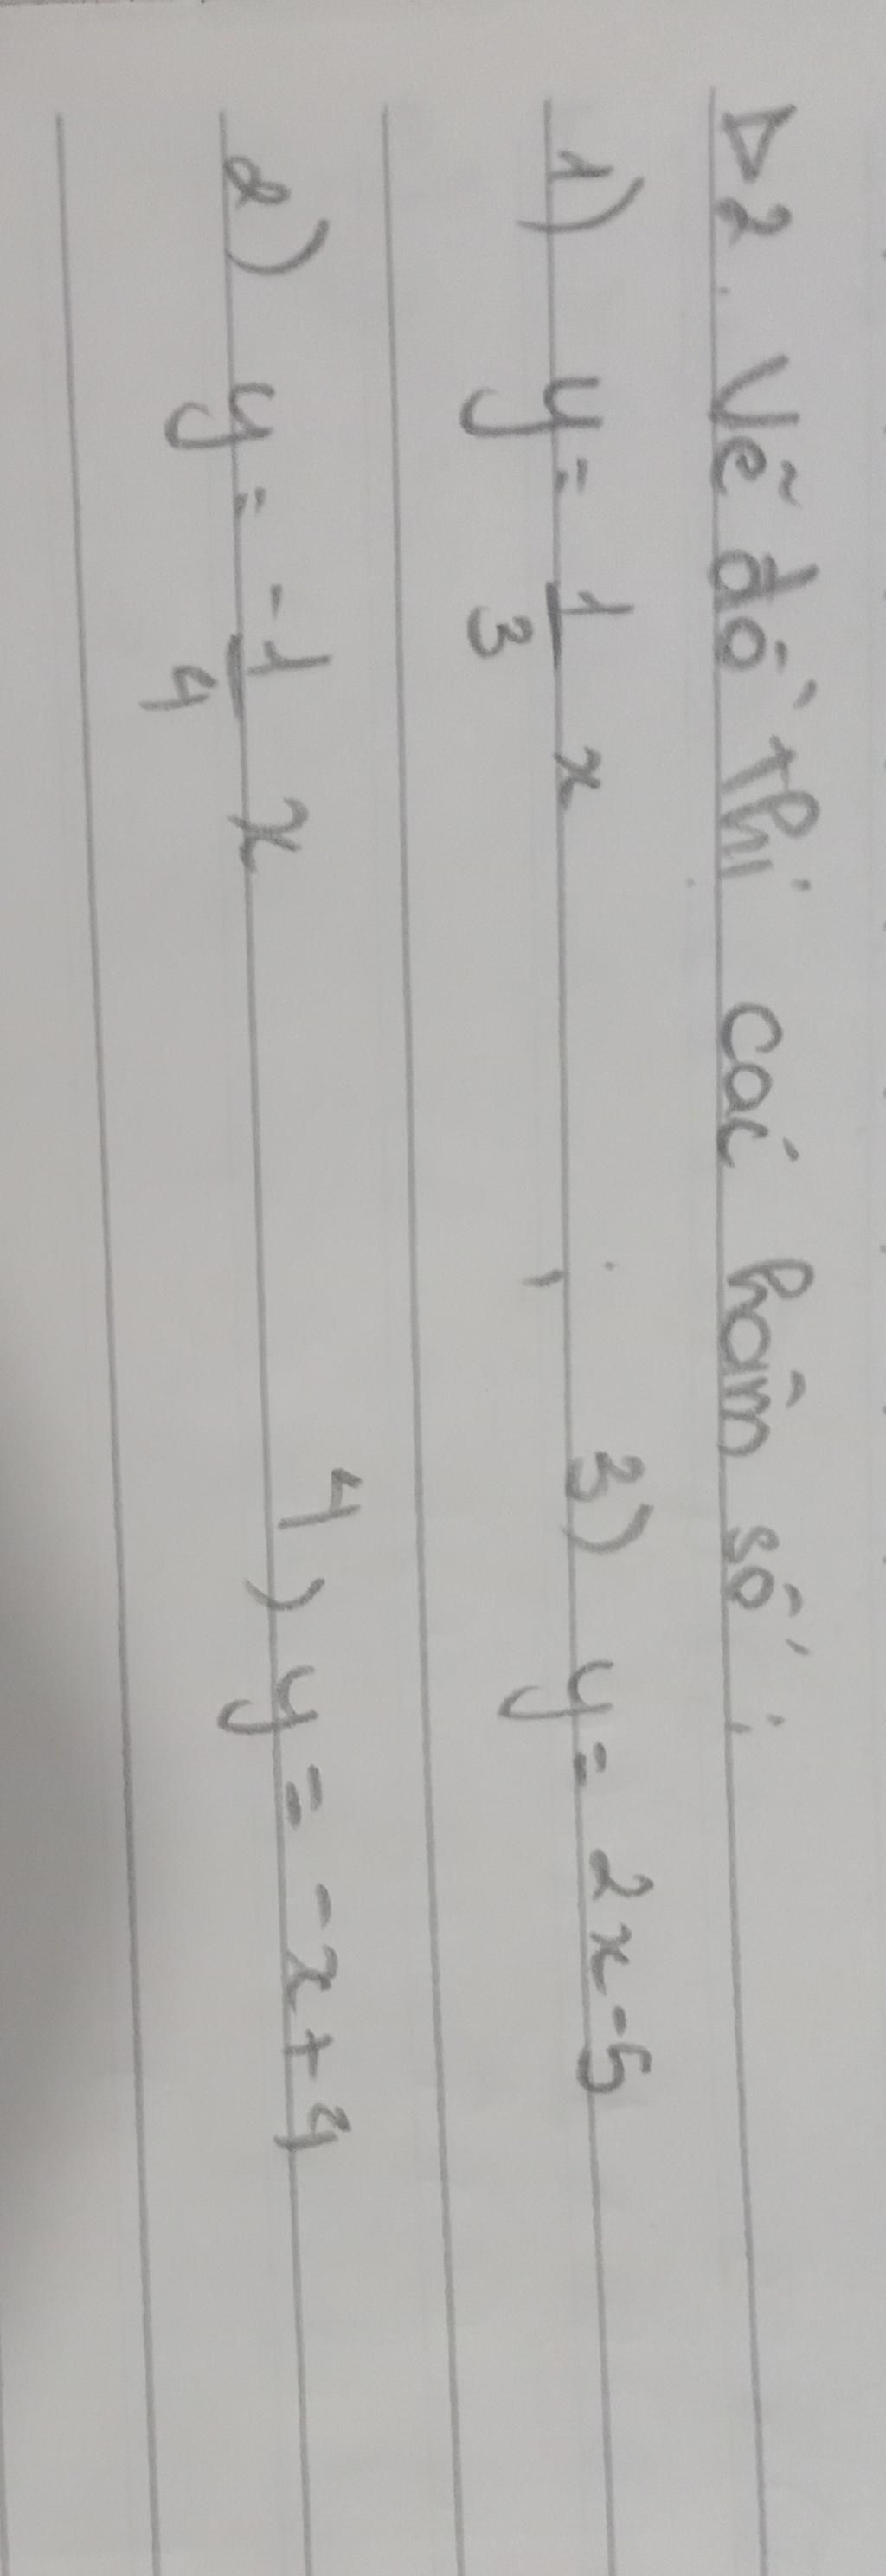 D2. Vẽ đồ thị các hâm số :
1) y = 1/3 x ; 3) y = 2x-5
2) y = -1/4 x 4) y = -x+4